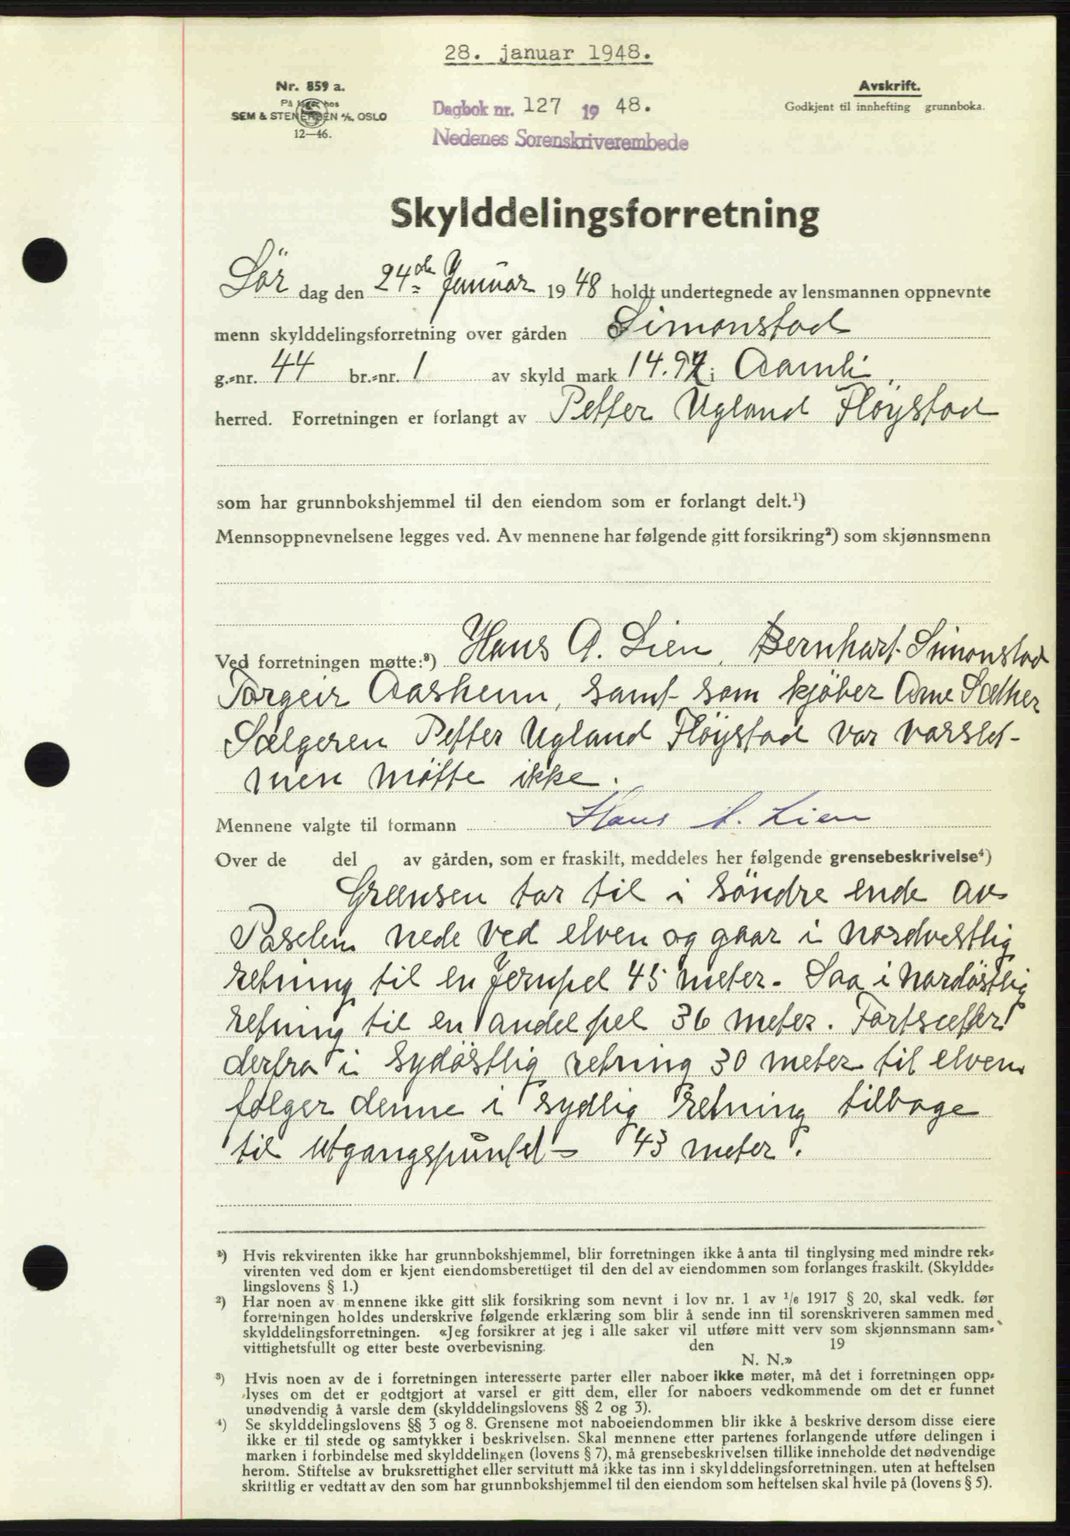 28. januar 1948.
Nr. 859 a.
På lager hos
SEM & STENERSEN A/S, OSLO
12—46.
Dagbok nr. 127 1948.
Nedenes Sorenskriverembede
Avskrift.
Godkjent til innhefting grunnboka.
Skylddelingsforretning
Lör dag den 24de Januar 1948 holdt undertegnede av lensmannen oppnevnte
menn skylddelingsforretning over gården Simonstad
g.-nr. 44 br.-nr. 1 av skyld mark 14.97 i Aamli
herred. Forretningen er forlangt av Petter Ugland Fløystad
som har grunnbokshjemmel til den eiendom som er forlangt delt.¹)
Mennsoppnevnelsene legges ved. Av mennene har følgende gitt forsikring²) som skjønnsmenn
Ved forretningen møtte:³) Hans A. Lien, Bernhart Simonstad
Torgeir Aasheim, samt som kjöber Arne Sæther
Sælgeren Petter Ugland Fløystad var varslet-
men møtte ikke.
Mennene valgte til formann Hans A. Lien
Over de del av gården, som er fraskilt, meddeles her følgende grensebeskrivelse⁴)
Greensen tar til i söndre ende av
Paselen nede ved elven og gaar i nordvestlig
retning til en Jernpel 45 meter. Saa i nordöstlig
retning til en andel pel 36 meter. Fortsætter
derfra i sydöstlig retning 30 meter til elven
fölger denne i sydlig retning tilbage
til utgangspunktet – 43 meter.
¹) Hvis rekvirenten ikke har grunnbokshjemmel, blir forretningen ikke å anta til tinglysing med mindre rek-
virenten ved dom er kjent eiendomsberettiget til den del av eiendommen som forlanges fraskilt. (Skyldde-
lingslovens § 1.)
²) Har noen av mennene ikke gitt slik forsikring som nevnt i lov nr. 1 av 1/6 1917 § 20, skal vedk. før
forretningen holdes underskrive følgende erklæring som blir å sende inn til sorenskriveren sammen med
skylddelingsforretningen. «Jeg forsikrer at jeg i alle saker vil utføre mitt verv som skjønnsmann sam-
vittighetsfullt og etter beste overbevisning. den 19
N. N.»
³) Hvis noen av de i forretningen interesserte parter eller naboer ikke møter, må det i forretningen opp-
lyses om det er godtgjort at varsel er gitt dem, eller for naboers vedkommende om det er funnet
unødvendig å varsle dem (skylddelingslovens §§ 2 og 3).
⁴) Se skylddelingslovens §§ 3 og 8. Grensene mot naboeiendommen blir ikke å beskrive dersom disse eiere
ikke er til stede og samtykker i beskrivelsen. Skal mennene etter partenes forlangende utføre delingen i
marken i forbindelse med skylddelingen (lovens § 7), må grensebeskrivelsen tillike inneholde det nødvendige
herom. Stiftelse av bruksrettighet eller servitutt må ikke tas inn i skylddelingsforretningen, uten at heftelsen
skriftlig er vedtatt av den som har grunnbokshjemmel til den eiendom som heftelsen skal hvile på (lovens § 5).